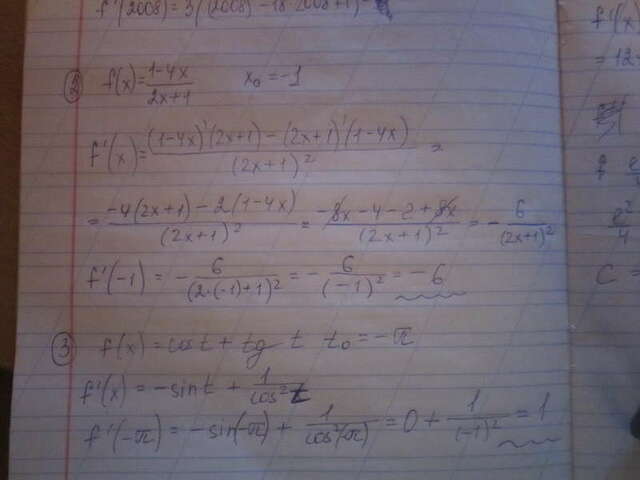 f'(2008) = 3((2008) - 18·2008+1) =
② f(x) = (1-4x)/(2x+1) x₀ = -1
f'(x) = ((1-4x)'(2x+1) - (2x+1)'(1-4x))/(2x+1)² =
= (-4(2x+1) - 2(1-4x))/(2x+1)² = (-8x - 4 - 2 + 8x)/(2x+1)² = - 6/(2x+1)²
f'(-1) = - 6/(2·(-1)+1)² = - 6/(-1)² = -6
③ f(x) = cos t + tg t t₀ = -π
f'(x) = -sin t + 1/cos² t
f'(-π) = -sin(-π) + 1/cos²(-π) = 0 + 1/(-1)² = 1
f'(x)
= 12
C =